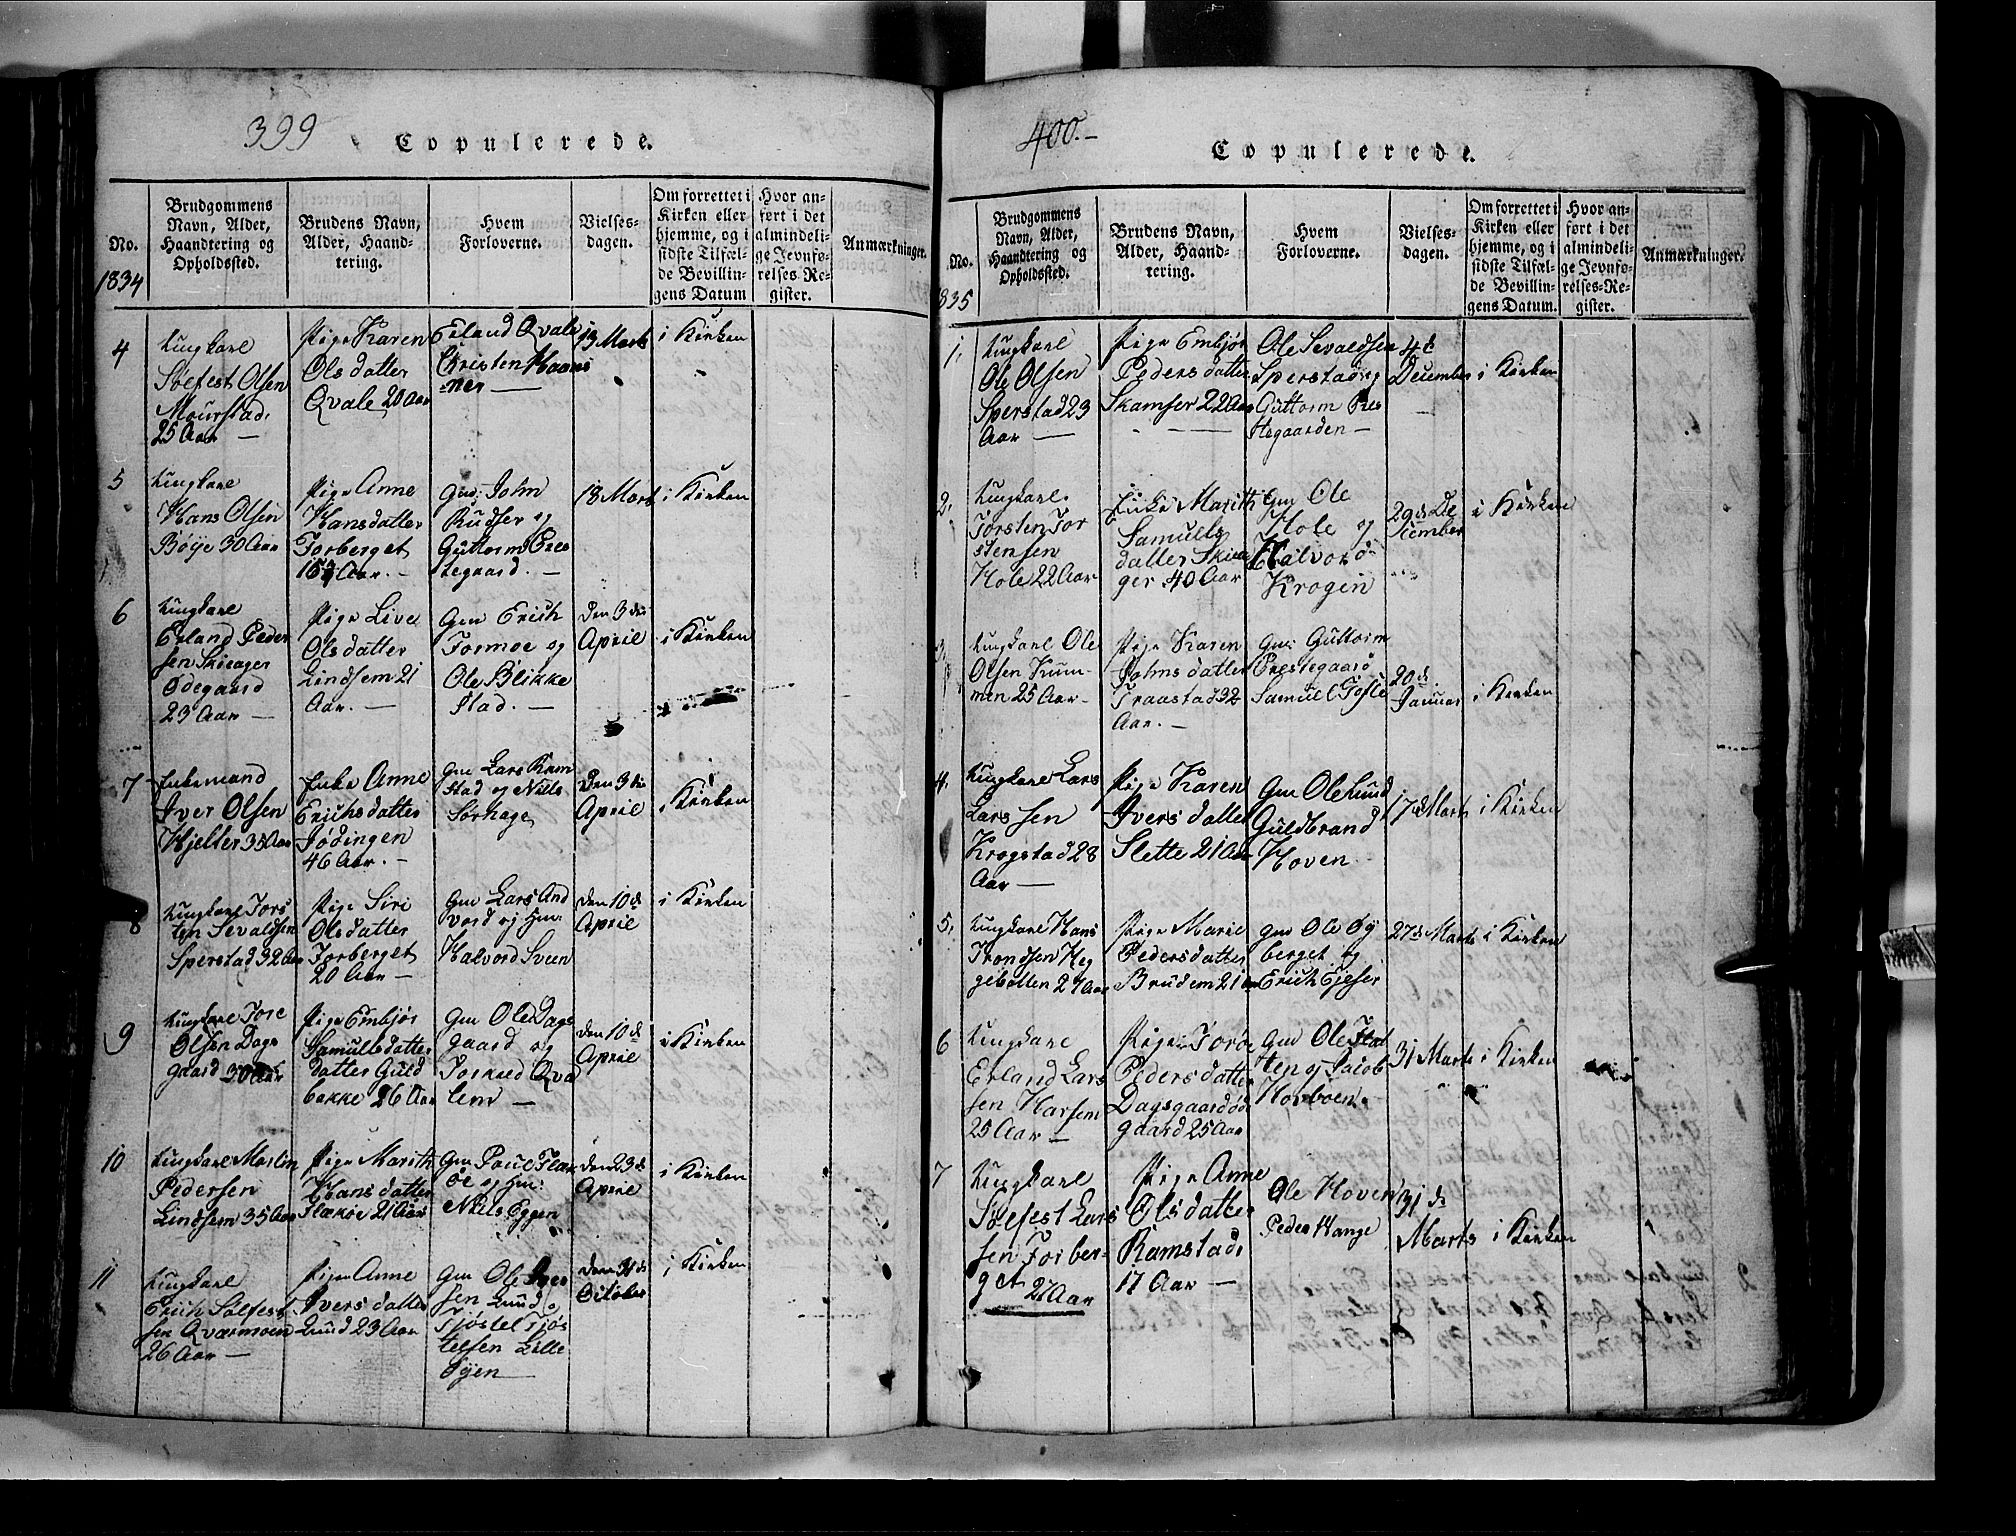 399
Copulerede.
No.
1834
Brudgommens
Navn, Alder,
Haandtering og
Opholdssted.
Brudens Navn,
Alder, Haand-
tering.
Hvem
Forloverne.
Vielses-
dagen.
Om forrettet i
Kirken eller
hjemme, og i
sidste Tilfæl-
de Bevillin-
gens Datum
Hvor an-
ført i det
almindeli-
ge Jevnfø-
relses-Re-
gister.
Anmærkninger.
4
Ungkarl
Sølfest Olsen
Mourstad
25 Aar —
Pige Karen
Ols datter
Qvale 20 Aar
Erland Qvale
Christen Haans
mer —
13 Marts
i Kirken
5
Ungkarl
Hans Olsen
Bøye 30 Aar
Pige Anne
Hansdatter
Forberget
Aar. —
Gm: John
Rudser og
Guttorm Pres
tegaard. —
18 Marts
i Kirken
6
Ungkarl
Erland Peder
sen Skieager
Ødegaard
23 Aar —
Pige Live
Olsdatter
Lindsem 21
Aar. —
Gm Erich
Formoe og
Ole Blikke
stad. —
Den 3die
April
i Kirken
7
Enkemand
Iver Olsen
Hjelter 35 Aar
Enke Anne
Erichsdatter
Jødingen
46 Aar. —
Gm Lars Ram
stad og Niels
Sørhage
Den 3die
April
i Kirken
8
Ungkarl Tors
ten Sevaldsen
Sperstad 32 Aar
Pige Siri
Olsdatter
Forberget
20 Aar —
Gm Lars And
vord og Gm:
Halvord Sveen
den 10de
April
i Kirken
9
Ungkarl Tore
Olsen Dags
gaard 30 Aar
Pige Embjør
Samuelsdatter
datter Guld
bakke 26 Aar
Gm Ole Dags
gaard og
Torkild Qva
lem —
den 10de
April
i Kirken
10
Ungkarl Martin
Pedersen
Lindsem 35 Aar
Pige Marith
Hansdatter
Flækøe 21 Aar
Gm Paul Flæk
øe og Gm:
Niels Eggen
den 23de
April
i Kirken
11
Ungkarl
Erich Sølfest
sen Qværnoen
26 Aar —
Pige Anne
Ivers datter
Lund 23 Aar
Gm Ole Iver
sen Lund og
Tjøstel Tjøs
telsen Lille
Øyen —
den 31de
October
i Kirken
400. —
Copulerede.
No.
1835
Brudgommens
Navn, Alder,
Haandtering og
Opholdssted.
Brudens Navn,
Alder, Haand-
tering.
Hvem
Forloverne.
Vielses-
dagen.
Om forrettet i
Kirken eller
hjemme, og i
sidste Tilfæl-
de Bevillin-
gens Datum.
Hvor an-
ført i det
almindeli-
ge Jevnfø-
relses-Re-
gister.
Anmærkninger.
1.
Ungkarl
Ole Olsen
Sperstad 23
Aar —
Pige Embjør
Peders datter
Skamser 22 Aar
Ole Sevaldsen
Sperstad og
Guttorm Pres
tegaarden —
4de
December
—
i Kirken
2.
Ungkarl
Torsten Tor
stensen
Hole 22 Aar
Enke Marith
Samuels
datter Skiea
ger 40 Aar
Gm Ole
Hole og
Halvor
Krogen
29de De
cember
i Kirken
3
Ungkarl Ole
Olsen Krum-
men 25 Aar —
Pige Karen
Johnsdatter
Traastad 32
Aar. —
Gm: Guttorm
Prestegaard
Samuel Tofte
20de
Januar
i Kirken
4.
Ungkarl Lars
Lars sen
Krogstad 28
Aar —
Pige Karen
Ivers datter
Slette 21 Aar
Gm Ole Lund
Guldbrand
Hoven
17de Marts
i Kirken
5.
Ungkarl Hans
Trondsen Heg
gebotten 27 Aar
Pige Marie
Pedersdatter
Brudem 21 Aar
Gm Ole Øy
berget og
Erich Gjeser
27de Marts
i Kirken
6
Ungkarl
Erland Lars
sen Harsem
25 Aar —
Pige Torø
Pedersdatter
Dagsgaardøde
gaard 25 Aar
Gm Ole Flat
ten og Jacob
Horboen
31 Marts
i Kirken
7
Ungkarl
Sølfest Lars
sen Forber-
get 27 Aar
Pige Anne
Olsdatter
Ramstad
17 Aar —
Ole Hoven
Peder Hange
31 de
Marts
i Kirken